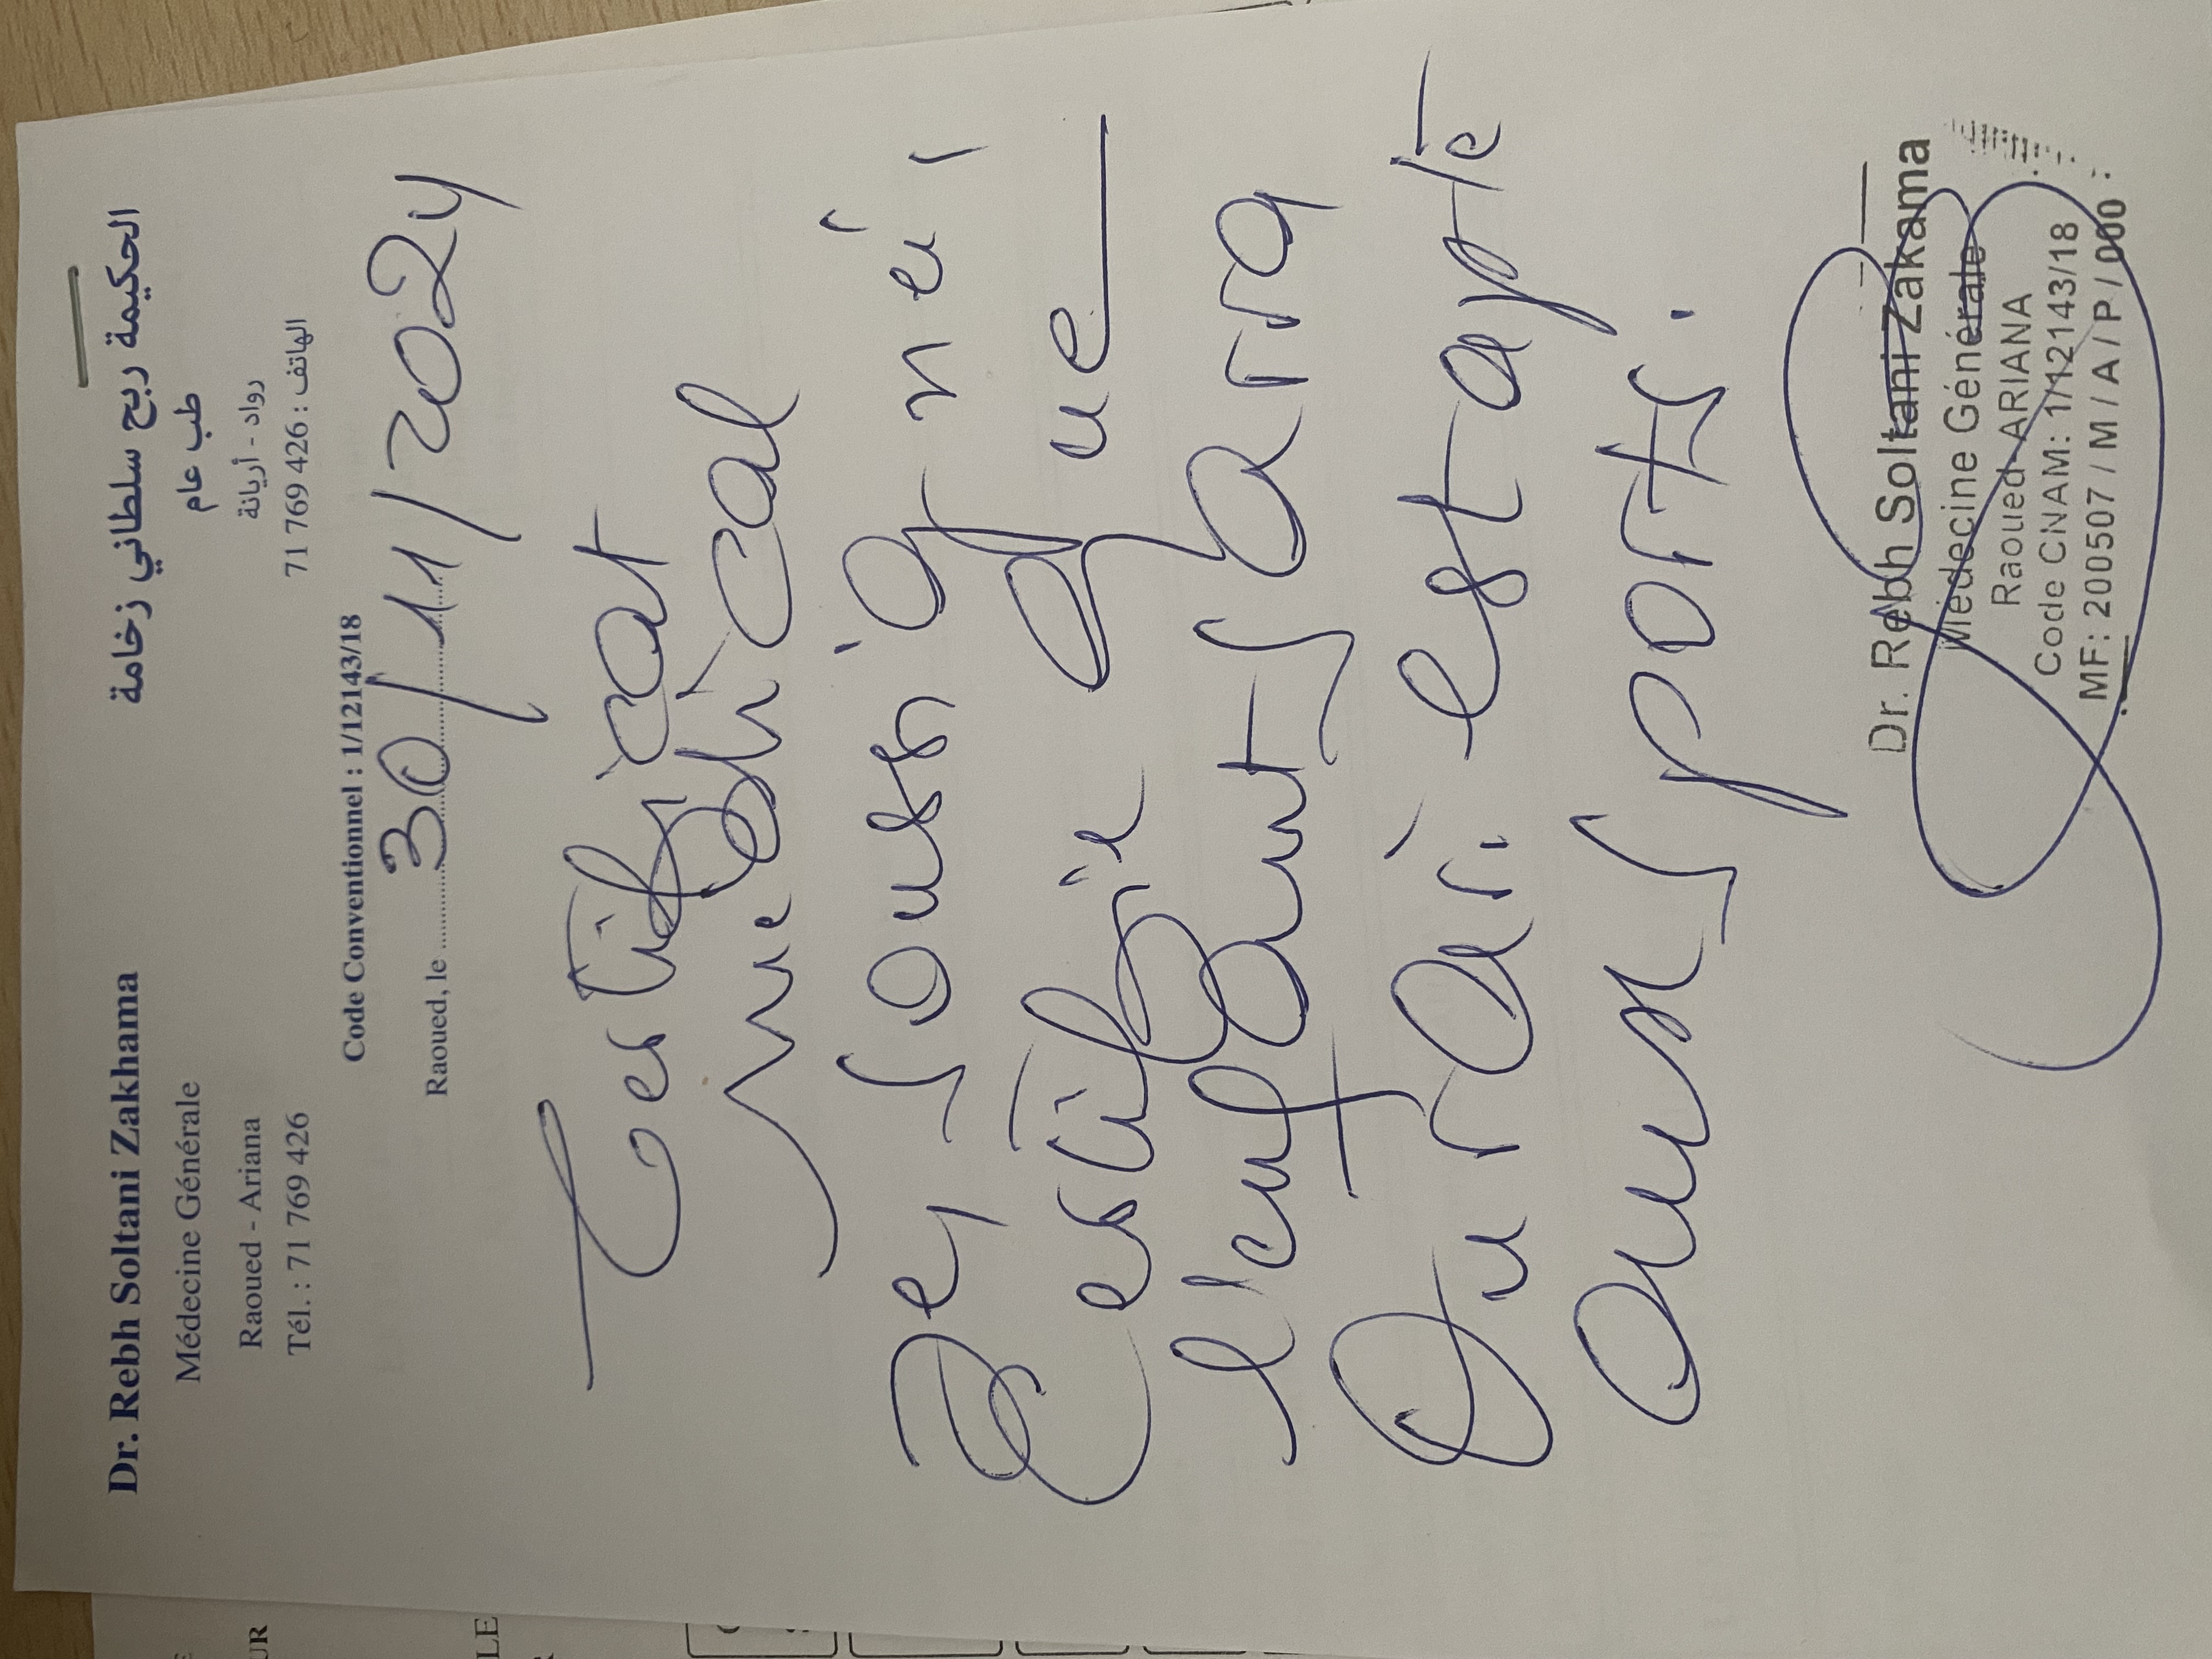 Dr. Rebh Soltani Zakhama
Médecine Générale
Raoued - Ariana
Tél. : 71 769 426
الحكيمة ربح سلطاني زخامة
طب عام
رواد - أريانة
الهاتف : 426 769 71
Code Conventionnel : 1/12143/18
Raoued, le 30/11/2024
Certificat
Médical
Je, soussigné,
certifie que
l'enfant Sarra
est apte
aux sports.
Dr. Rebh Soltani Zakama
Médecine Générale
Raoued-ARIANA
Code CNAM: 1/12143/18
MF: 200507 / M / A / P / 000
UR
LE